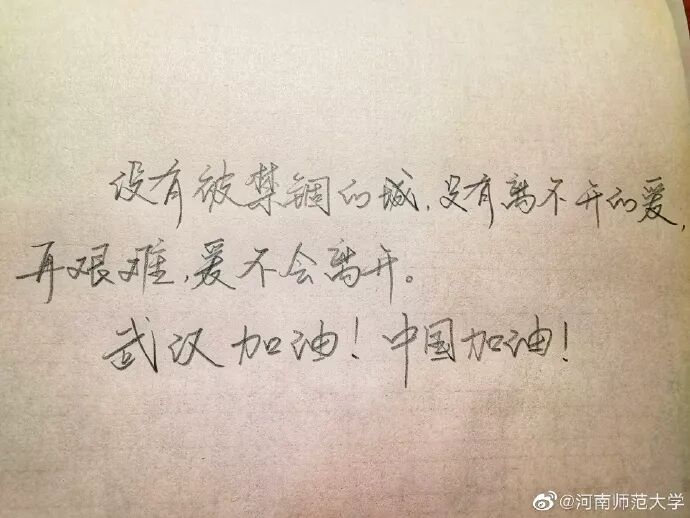 没有被禁锢的城，没有离不开的爱，
再艰难，爱不会离开。
武汉加油！中国加油！
@河南师范大学